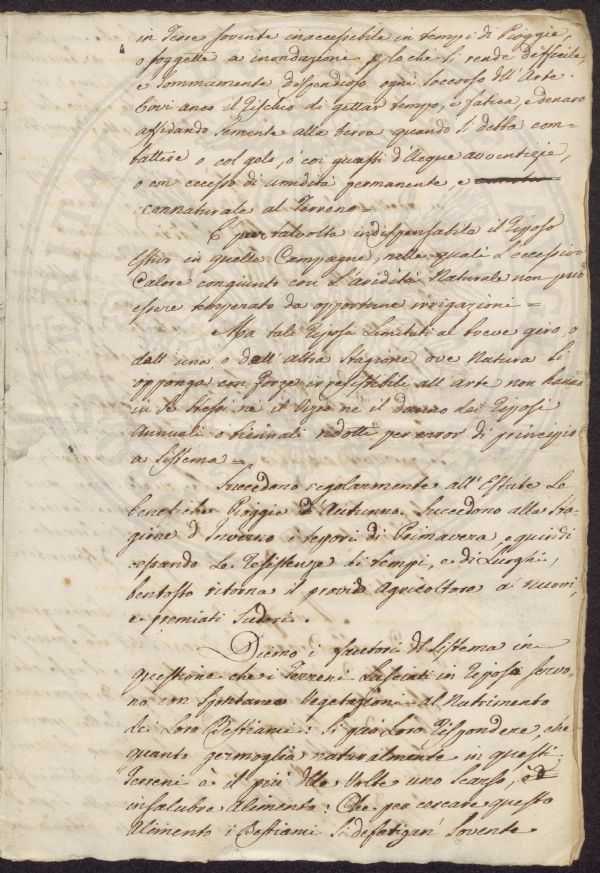 in Terre sovente inaccessibile in tempi di Pioggie,
o soggette a inondazione p lo che si rende difficile,
e sommamente dispendioso ogni soccorso dell'Arte.
Covi anco il Rischio di gettar tempo, e fatica, e denaro
affidando semente alla terra quando si debba com=
battere o col gelo, o coi guasti d'Acque avventizie,
o con eccesso di umidità permanente, e
connaturale al Terreno =
È pur talvolta indispensabile il Riposo
Estivo in quelle Campagne, nelle quali L'eccessivo
Calore congiunto con L'aridità Naturale non può
essere temperato da opportune irrigazioni =
Ma tali Riposi Limitati al breve giro, o
dell'una o dell'altra Stagione ove Natura si
opponga con forze irresistibili all'Arte non hanno
in se stessi ne il Vizio ne il danno dei Riposi
Annuali o triennali ridotti per error di principio
a Sistema =
Succedono regolarmente all'Estate Le
benefiche Pioggie d'Autunno. Succedono alla Sta=
gione d'Inverno i tepori di Primavera, e quindi
cessando Le Resistenze di tempi, e di Luoghi,
bentosto ritorna il provido Agricoltore a nuovi,
e premiati Sudori.
Dicono i fautori del Sistema in
questione che i Terreni Lasciati in Riposo servo=
no con Spontanea Vegetazione al Nutrimento
dei Loro Bestiami: Si può Loro Rispondere, che
quanto germoglia naturalmente in questi
Terreni è il più delle Volte uno scarso, ed
insalubre alimento: Che per cercare questo
Alimento i Bestiami Si defatigan' Sovente